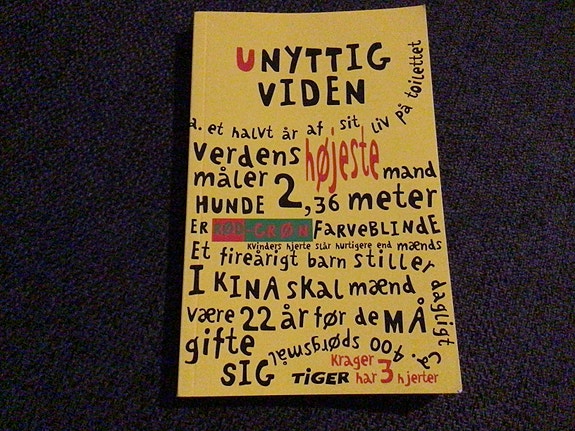 UNYTTIG
VIDEN
a. et halvt år af sit liv på toilettet
verdens højeste mand
måler 2,36 meter
HUNDE
ER RØD-GRØN FARVEBLINDE
Kvinders hjerte slår hurtigere end mænds
Et fireårigt barn stiller dagligt ca. 400 spørgsmål
I KINA skal mænd
være 22 år før de MÅ
gifte
SIG
TiGER
Krager
har 3 hjerter